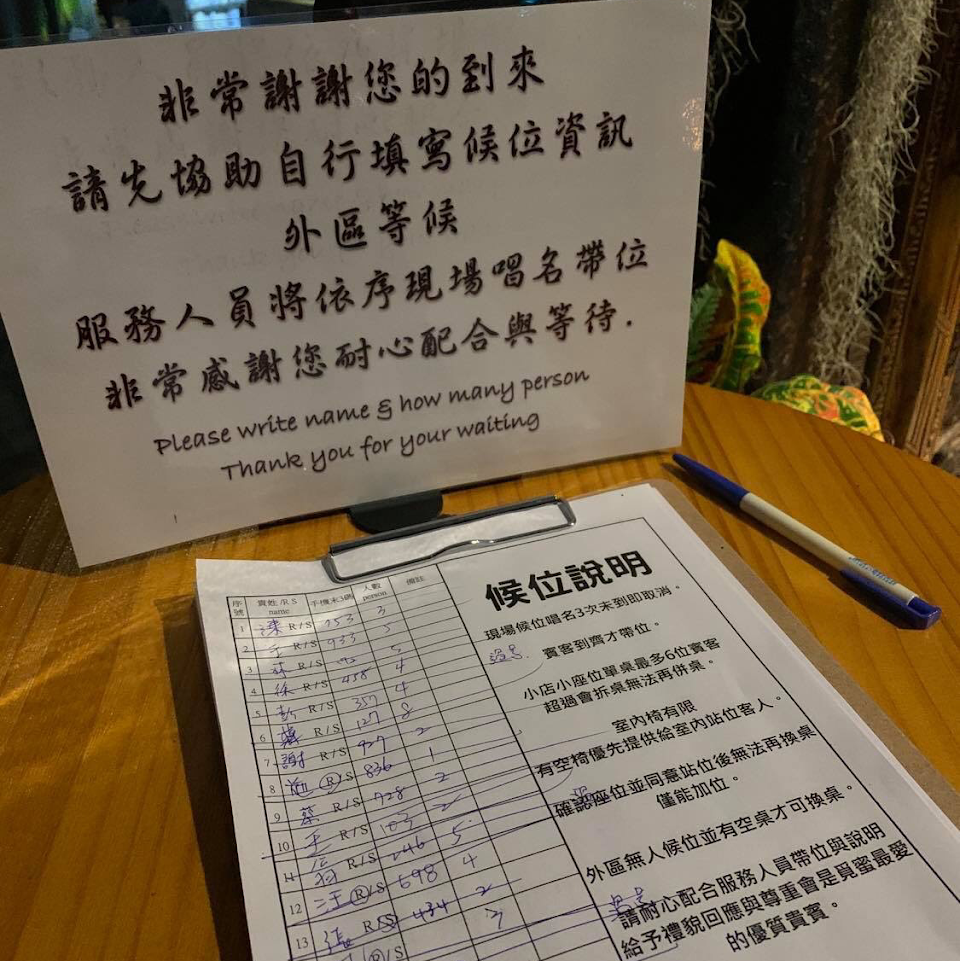 非常謝謝您的到來
請先協助自行填寫候位資訊
外區等候
服務人員將依序現場唱名帶位
非常感謝您耐心配合與等待.
Please write name & how many person
Thank you for your waiting
序號 貴姓/R S name 手機末3碼 人數 person 備註
1 陳 R/S 953 3
2 王 R/S 933 5
3 林 R/S
4 徐 R/S 458 4
5 彭 R/S 357 4
6 R/S 127 8
7 謝 R/S 927 2
8 R/S 836 1
9 蔡 R/S 728 2
10 王 R/S 103 2
11 翁 R/S 246 5
12 汪 R/S 698 4
13 張 R/S 434 2
R/S 7
候位說明
現場候位唱名3次未到即取消。
賓客到齊才帶位。
小店小座位單桌最多6位賓客
超過會拆桌無法再併桌。
室內椅有限
有空椅優先提供給室內站位客人。
確認座位並同意站位後無法再換桌
僅能加位。
外區無人候位並有空桌才可換桌。
請耐心配合服務人員帶位與說明
給予禮貌回應與尊重會是覓蜜最愛
的優質貴賓。